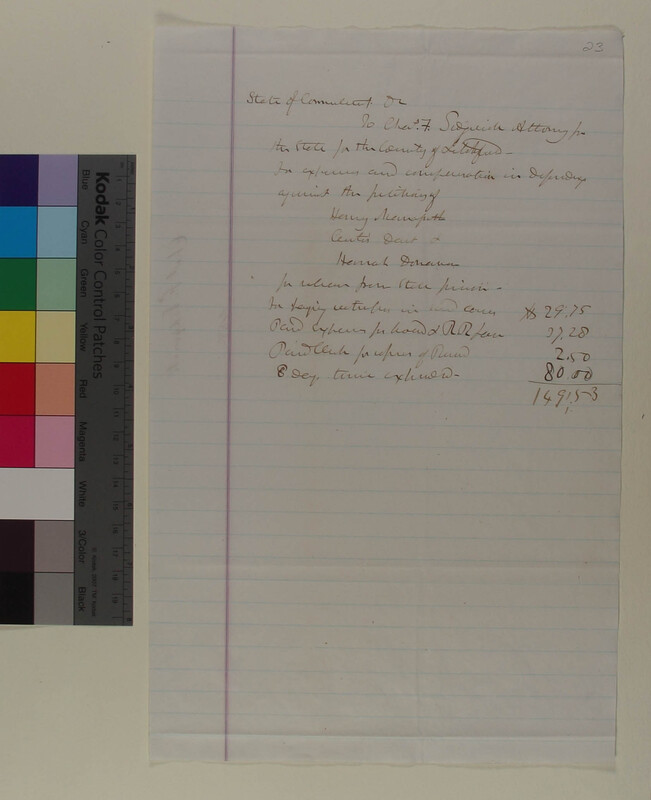 23
State of Connecticut Dr
To Chas. F. Sedgwick Attorney for
the State for the County of Litchfield—
For expenses and compensation in defending
against the petitions of
Henry
Center
Hannah Donovan
for release from State prison—
For paying witnesses in said cases $ 29.75
Paid expenses for board & R R fare 37.28
Paid Clerk for copies of Record 2.50
8 days time expended— 80.00
149.53
Kodak Color Control Patches
Blue
Cyan
Green
Yellow
Red
Magenta
White
3/Color
Black